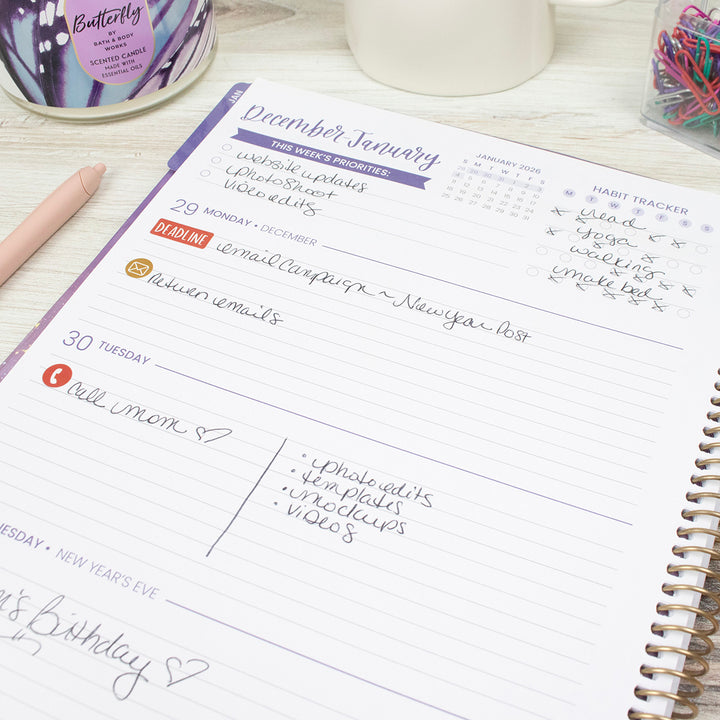 Butterfly
BY
BATH & BODY
WORKS
SCENTED CANDLE
MADE WITH
ESSENTIAL OILS
JAN
December-January
THIS WEEK'S PRIORITIES:
website updates
photoshoot
video edits
JANUARY 2026
S M T W T F S
28 29 30 31 1 2 3
4 5 6 7 8 9 10
11 12 13 14 15 16 17
18 19 20 21 22 23 24
25 26 27 28 29 30 31
HABIT TRACKER
M T W T F S S
read
yoga
walking
make bed
29 MONDAY • DECEMBER
DEADLINE email campaign ~ New Year Post
Return emails
30 TUESDAY
call mom ♡
• photo edits
• templates
• mockups
• videos
NESDAY • NEW YEAR'S EVE
's Birthday ♡